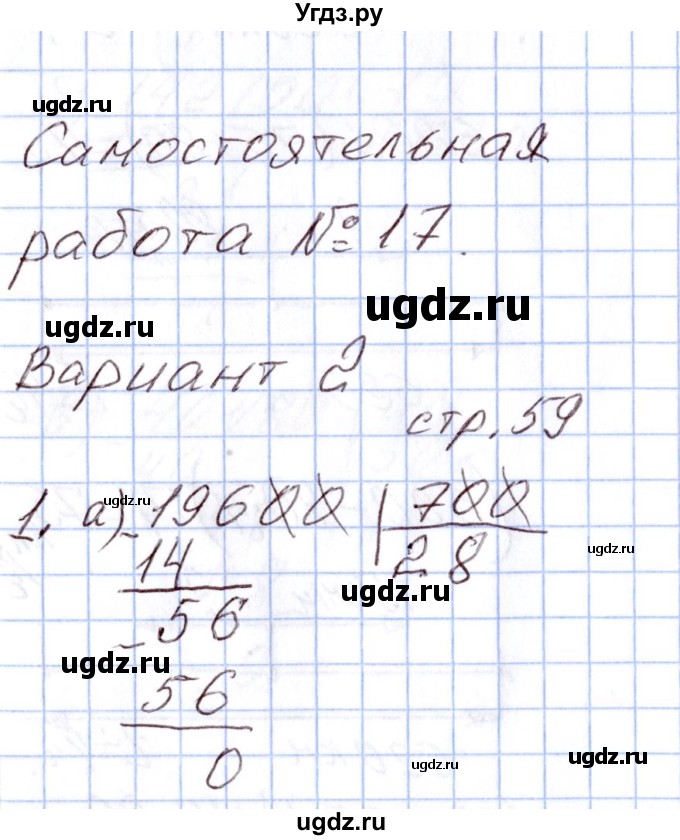 Угдз.ру
ugdz.ru
Самостоятельная
работа № 17.
ugdz.ru
ugdz.ru
Вариант 2
стр. 59
1. а) 19600 | 700
ugdz.ru
14 28
ugdz.ru
ugdz.ru
56
ugdz.ru
56
0
ugdz.ru
ugdz.ru
ugdz.ru